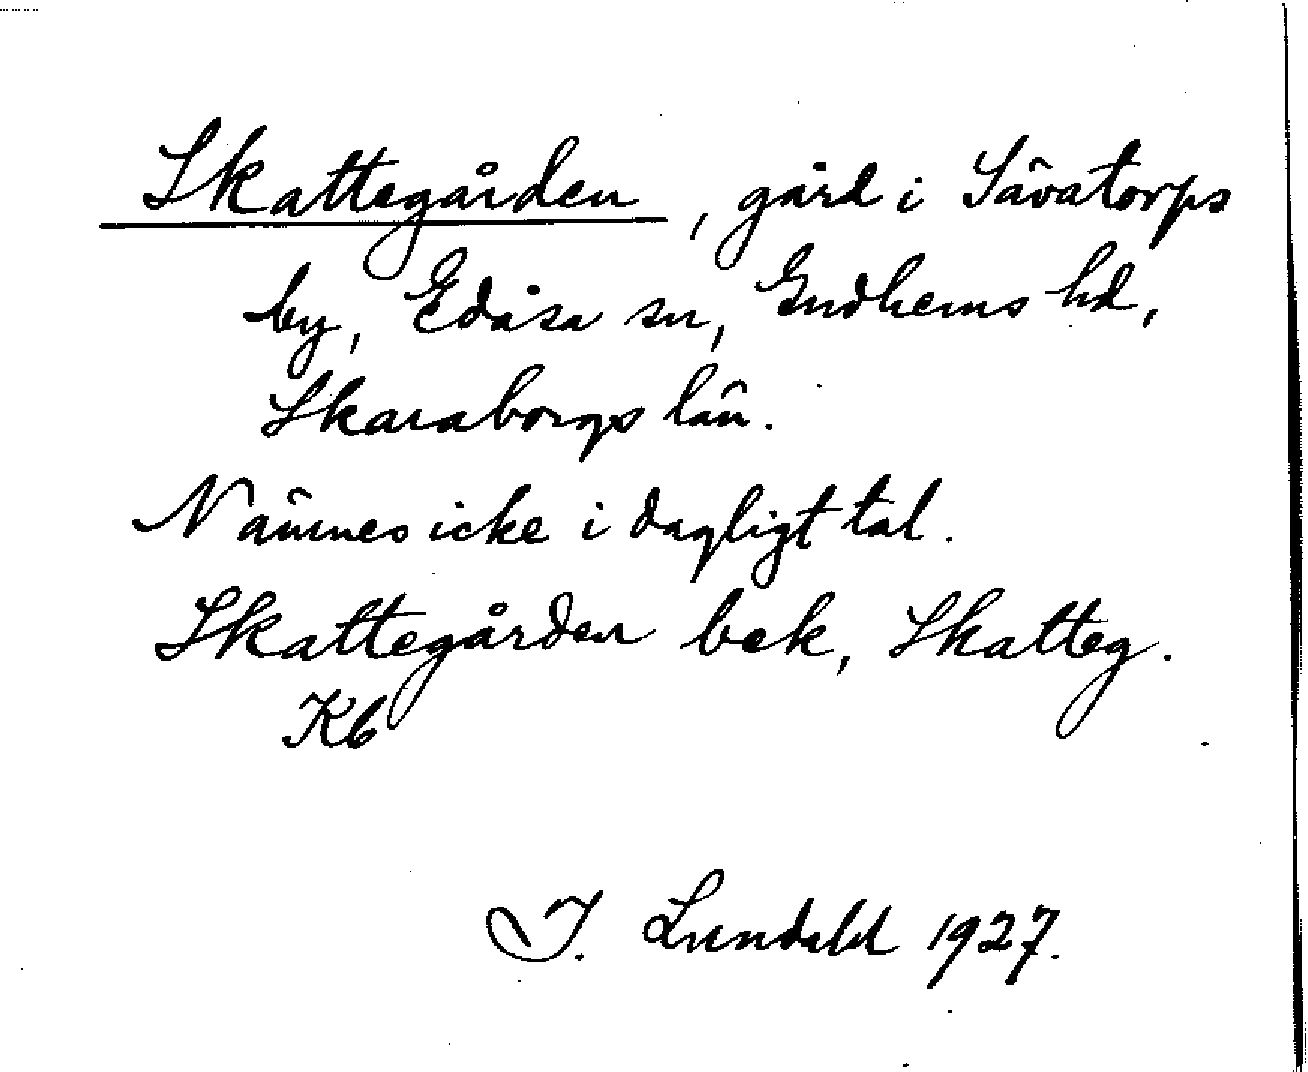 Skattegården, gård i Sävatorps
by, Edåsa sn, Gudhems hd,
Skaraborgs län.
Nämnes icke i dagligt tal.
Skattegården bek, Skatteg.
Kb
I. Lundahl 1927.